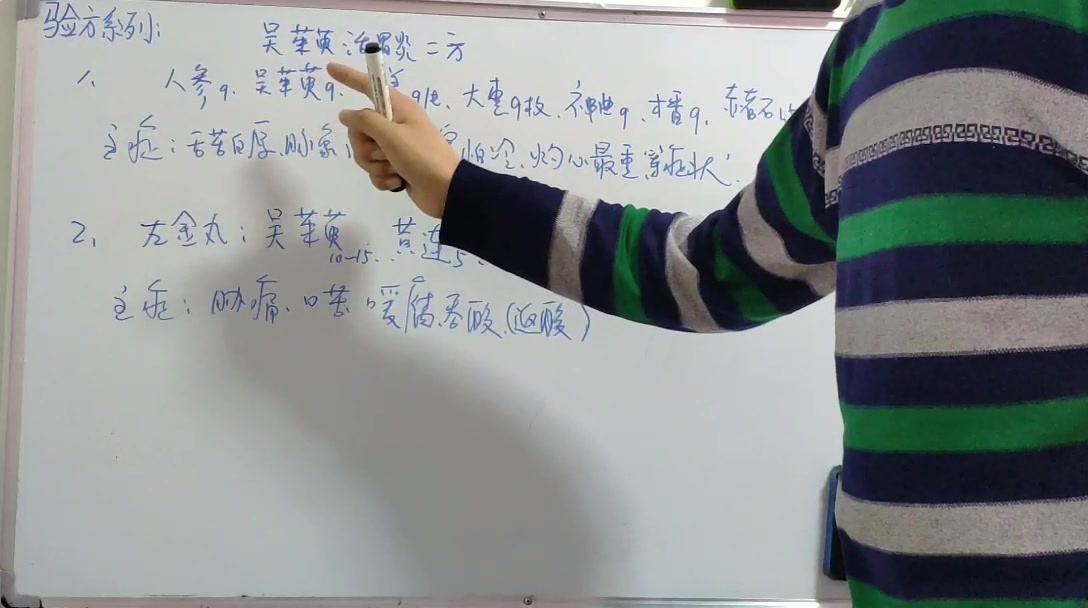 验方系列:
吴茱萸治胃炎二方
1、 人参9、吴茱萸9、 大枣9枚、神曲9、木香9、赤石
主症:舌苔白厚、脉象 怕冷、灼心最重 症状:
2、 左金丸:吴茱萸10-15、黄连5、
主症:胁痛、口苦、嗳腐吞酸(返酸)